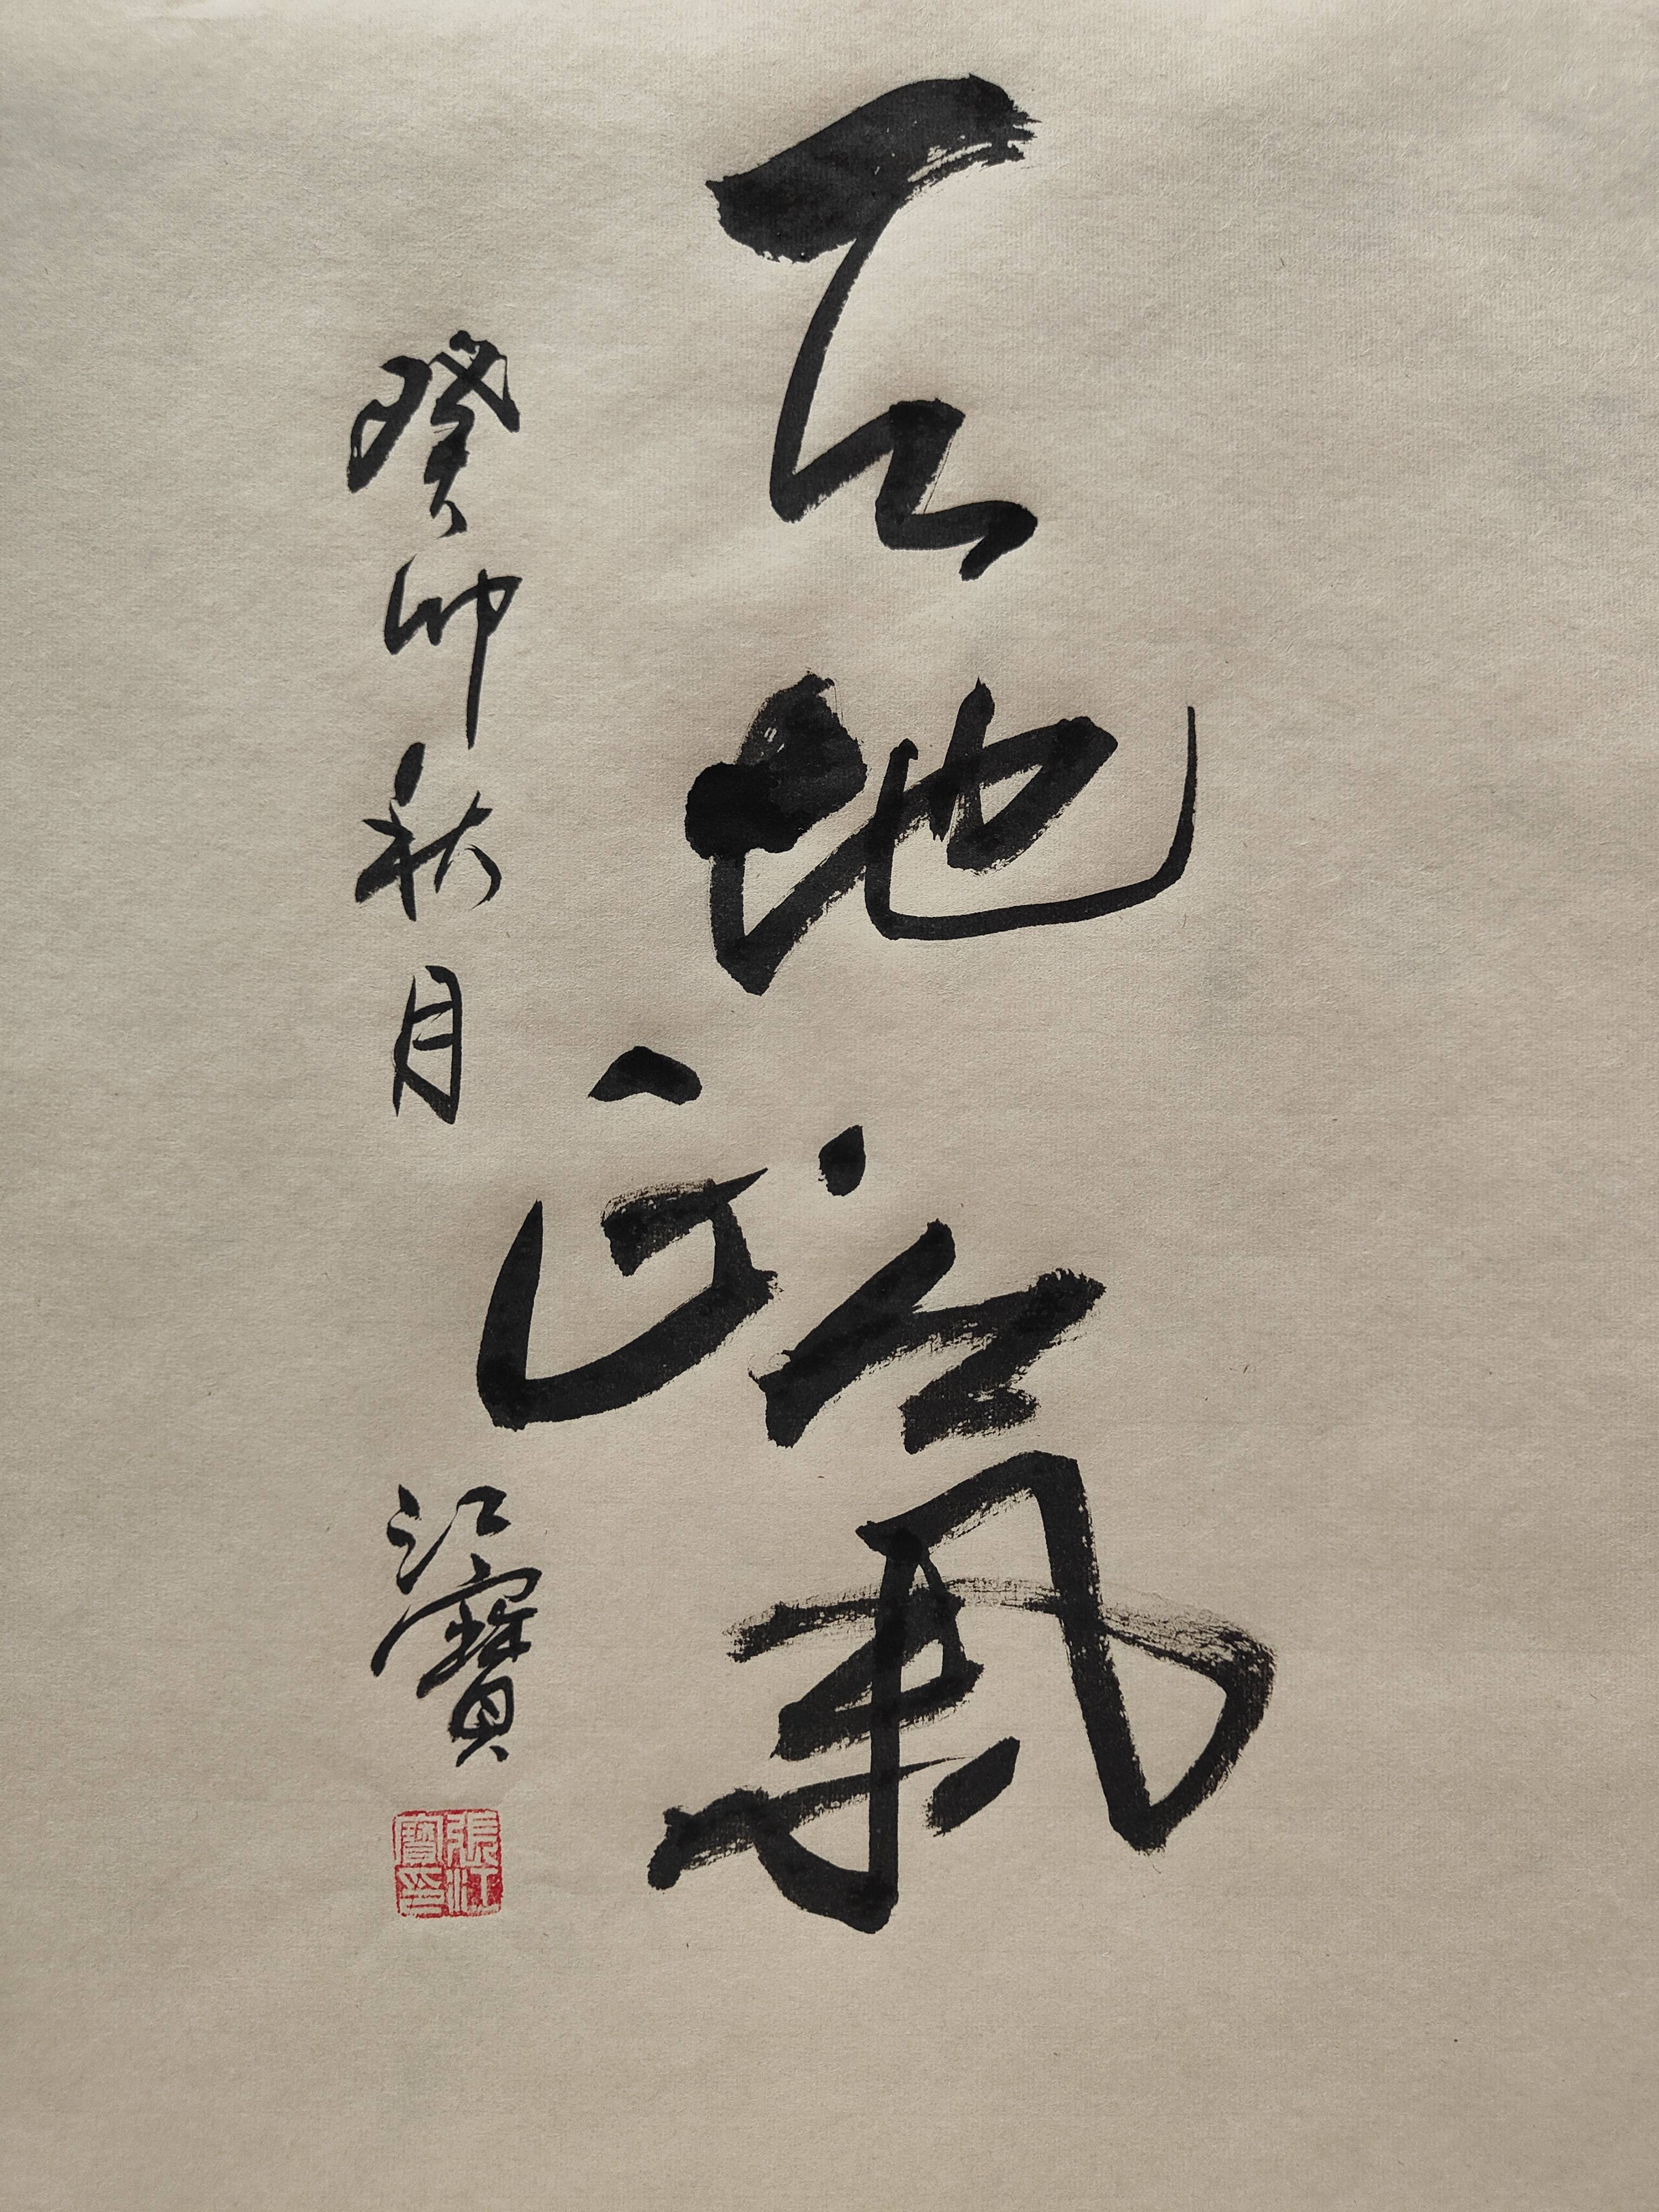 天地正氣
癸卯秋月 江寶
張江寶印